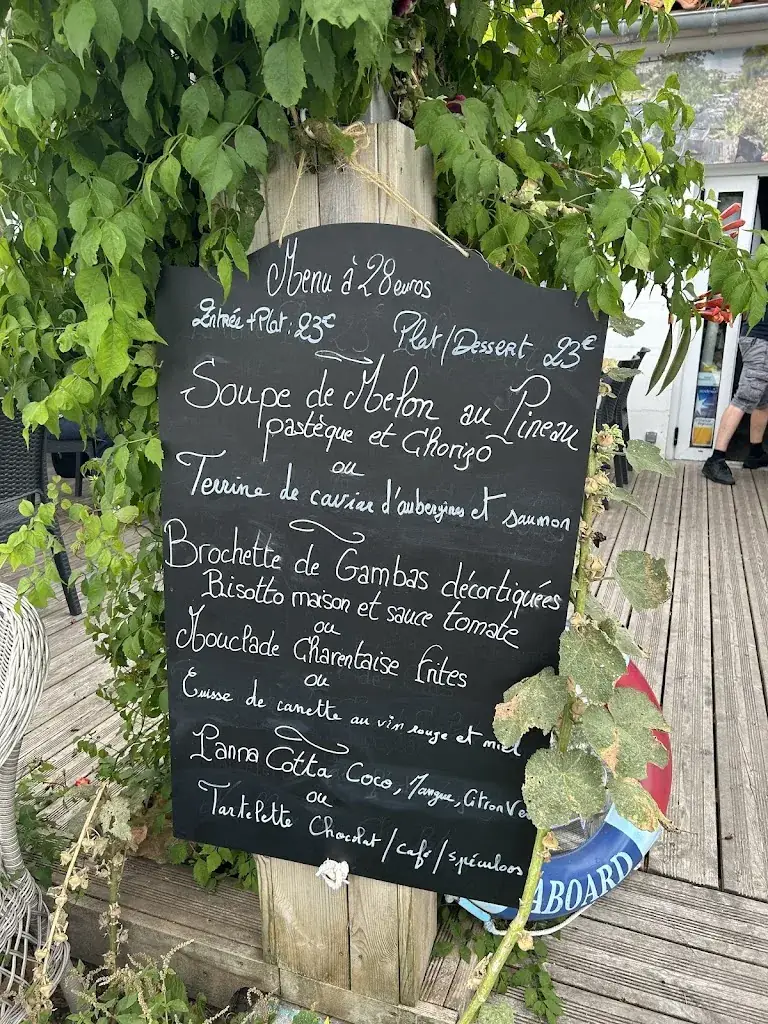 Menu à 28 euros
Entrée + Plat : 23€ Plat/Dessert 23€
Soupe de Melon au Pineau
pastèque et Chorizo
ou
Terrine de caviar d'aubergines et saumon
Brochette de Gambas décortiquées
Risotto maison et sauce tomate
ou
Mouclade Charentaise frites
ou
Cuisse de canette au vin rouge et miel
Panna Cotta Coco, Mangue, Citron Ve
ou
Tartelette Chocolat/café/spéculoos
ABOARD